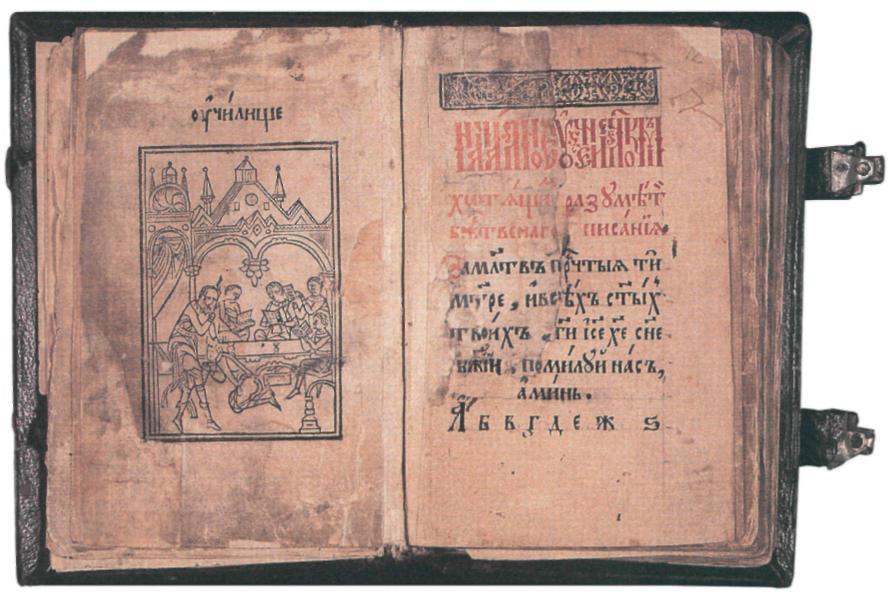 оу҆чи́лище
хотѧ́щимъ разꙋмѣ́ти
бж҃твенаго писа́нїѧ
За мл҃твъ прⷱ҇тыѧ ти
мт҃ре, и҆ всѣ́хъ ст҃ы́хъ
твои́хъ гⷭ҇и і҆с҃е хе҃ сн҃е
бж҃їи, поми́лꙋй на́съ,
а҆ми́нь.
А҆ б в г д е ж ѕ